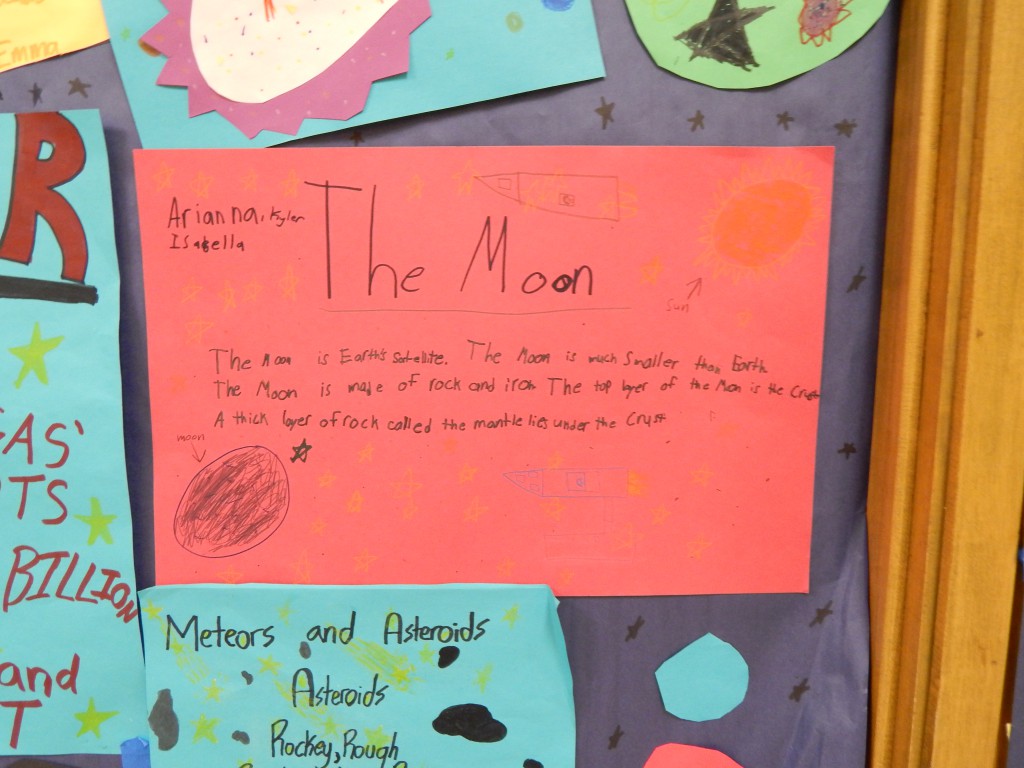 Emma
R
GAS'
BILLION
and
T
Arianna, Kyler
Isabella
The Moon
sun
The Moon is Earth's satellite. The Moon is much smaller than Earth
The Moon is made of rock and iron The top layer of the Moon is the Crust
A thick layer of rock called the mantle lies under the Crust
moon
Meteors and Asteroids
Asteroids
Rockey, Rough